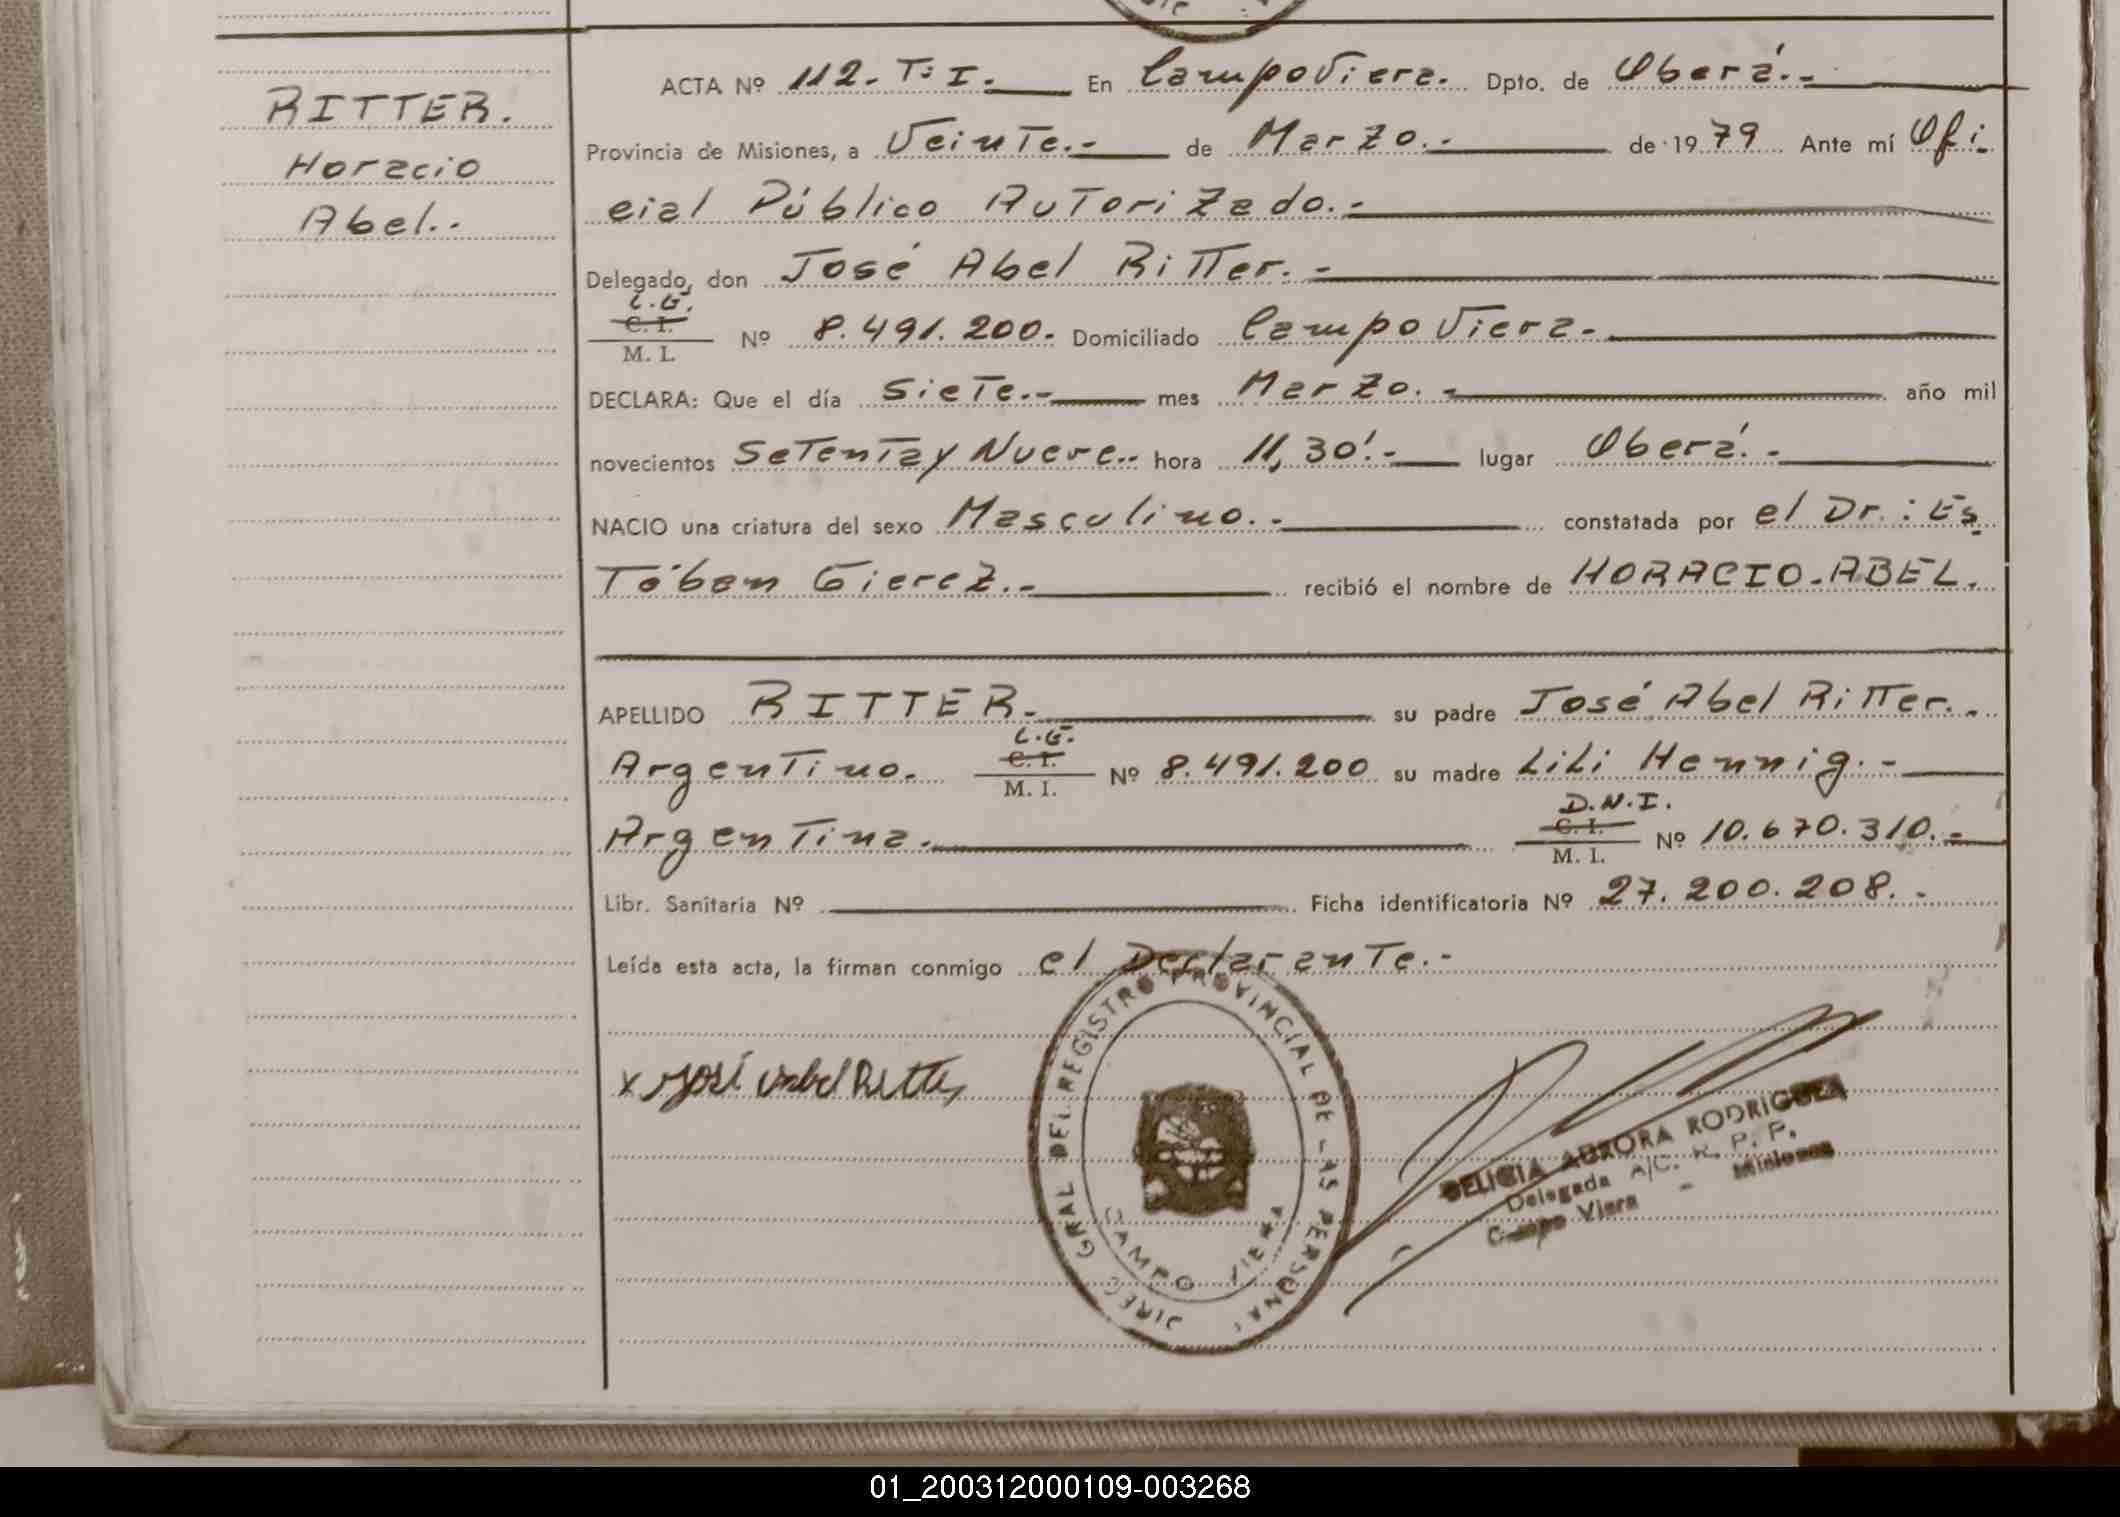 RITTER.
Horacio
Abel.-
ACTA Nº 112. Tº I. En Campo Viera. Dpto. de Oberá.-
Provincia de Misiones, a Veinte.- de Marzo.- de 1979 Ante mí Ofi
cial Público Autorizado.-
Delegado, don José Abel Ritter.-
L.E.
C. I.
M. I. Nº 8.491.200. Domiciliado Campo Viera.-
DECLARA: Que el día Siete.- mes Marzo.- año mil
novecientos Setenta y Nueve.- hora 11,30'.- lugar Oberá.-
NACIO una criatura del sexo Masculino.- constatada por el Dr.: Es
Téban Gierez.- recibió el nombre de HORACIO-ABEL.
APELLIDO RITTER.- su padre José Abel Ritter.-
L.E.
Argentino. C. I.
M. I. Nº 8.491.200 su madre Lili Hennig.-
D.N.I.
Argentina.- C. I.
M. I. Nº 10.670.310.-
Libr. Sanitaria Nº Ficha identificatoria Nº 27.200.208.-
Leída esta acta, la firman conmigo el Declarante.-
x José Abel Ritter
DIREC. GRAL DEL REGISTRO PROVINCIAL DE LAS PERSONAS
CAMPO VIERA
DELICIA AURORA RODRIGUEZ
Delegada A/C. R. P. P.
Campo Viera - Misiones
01_200312000109-003268